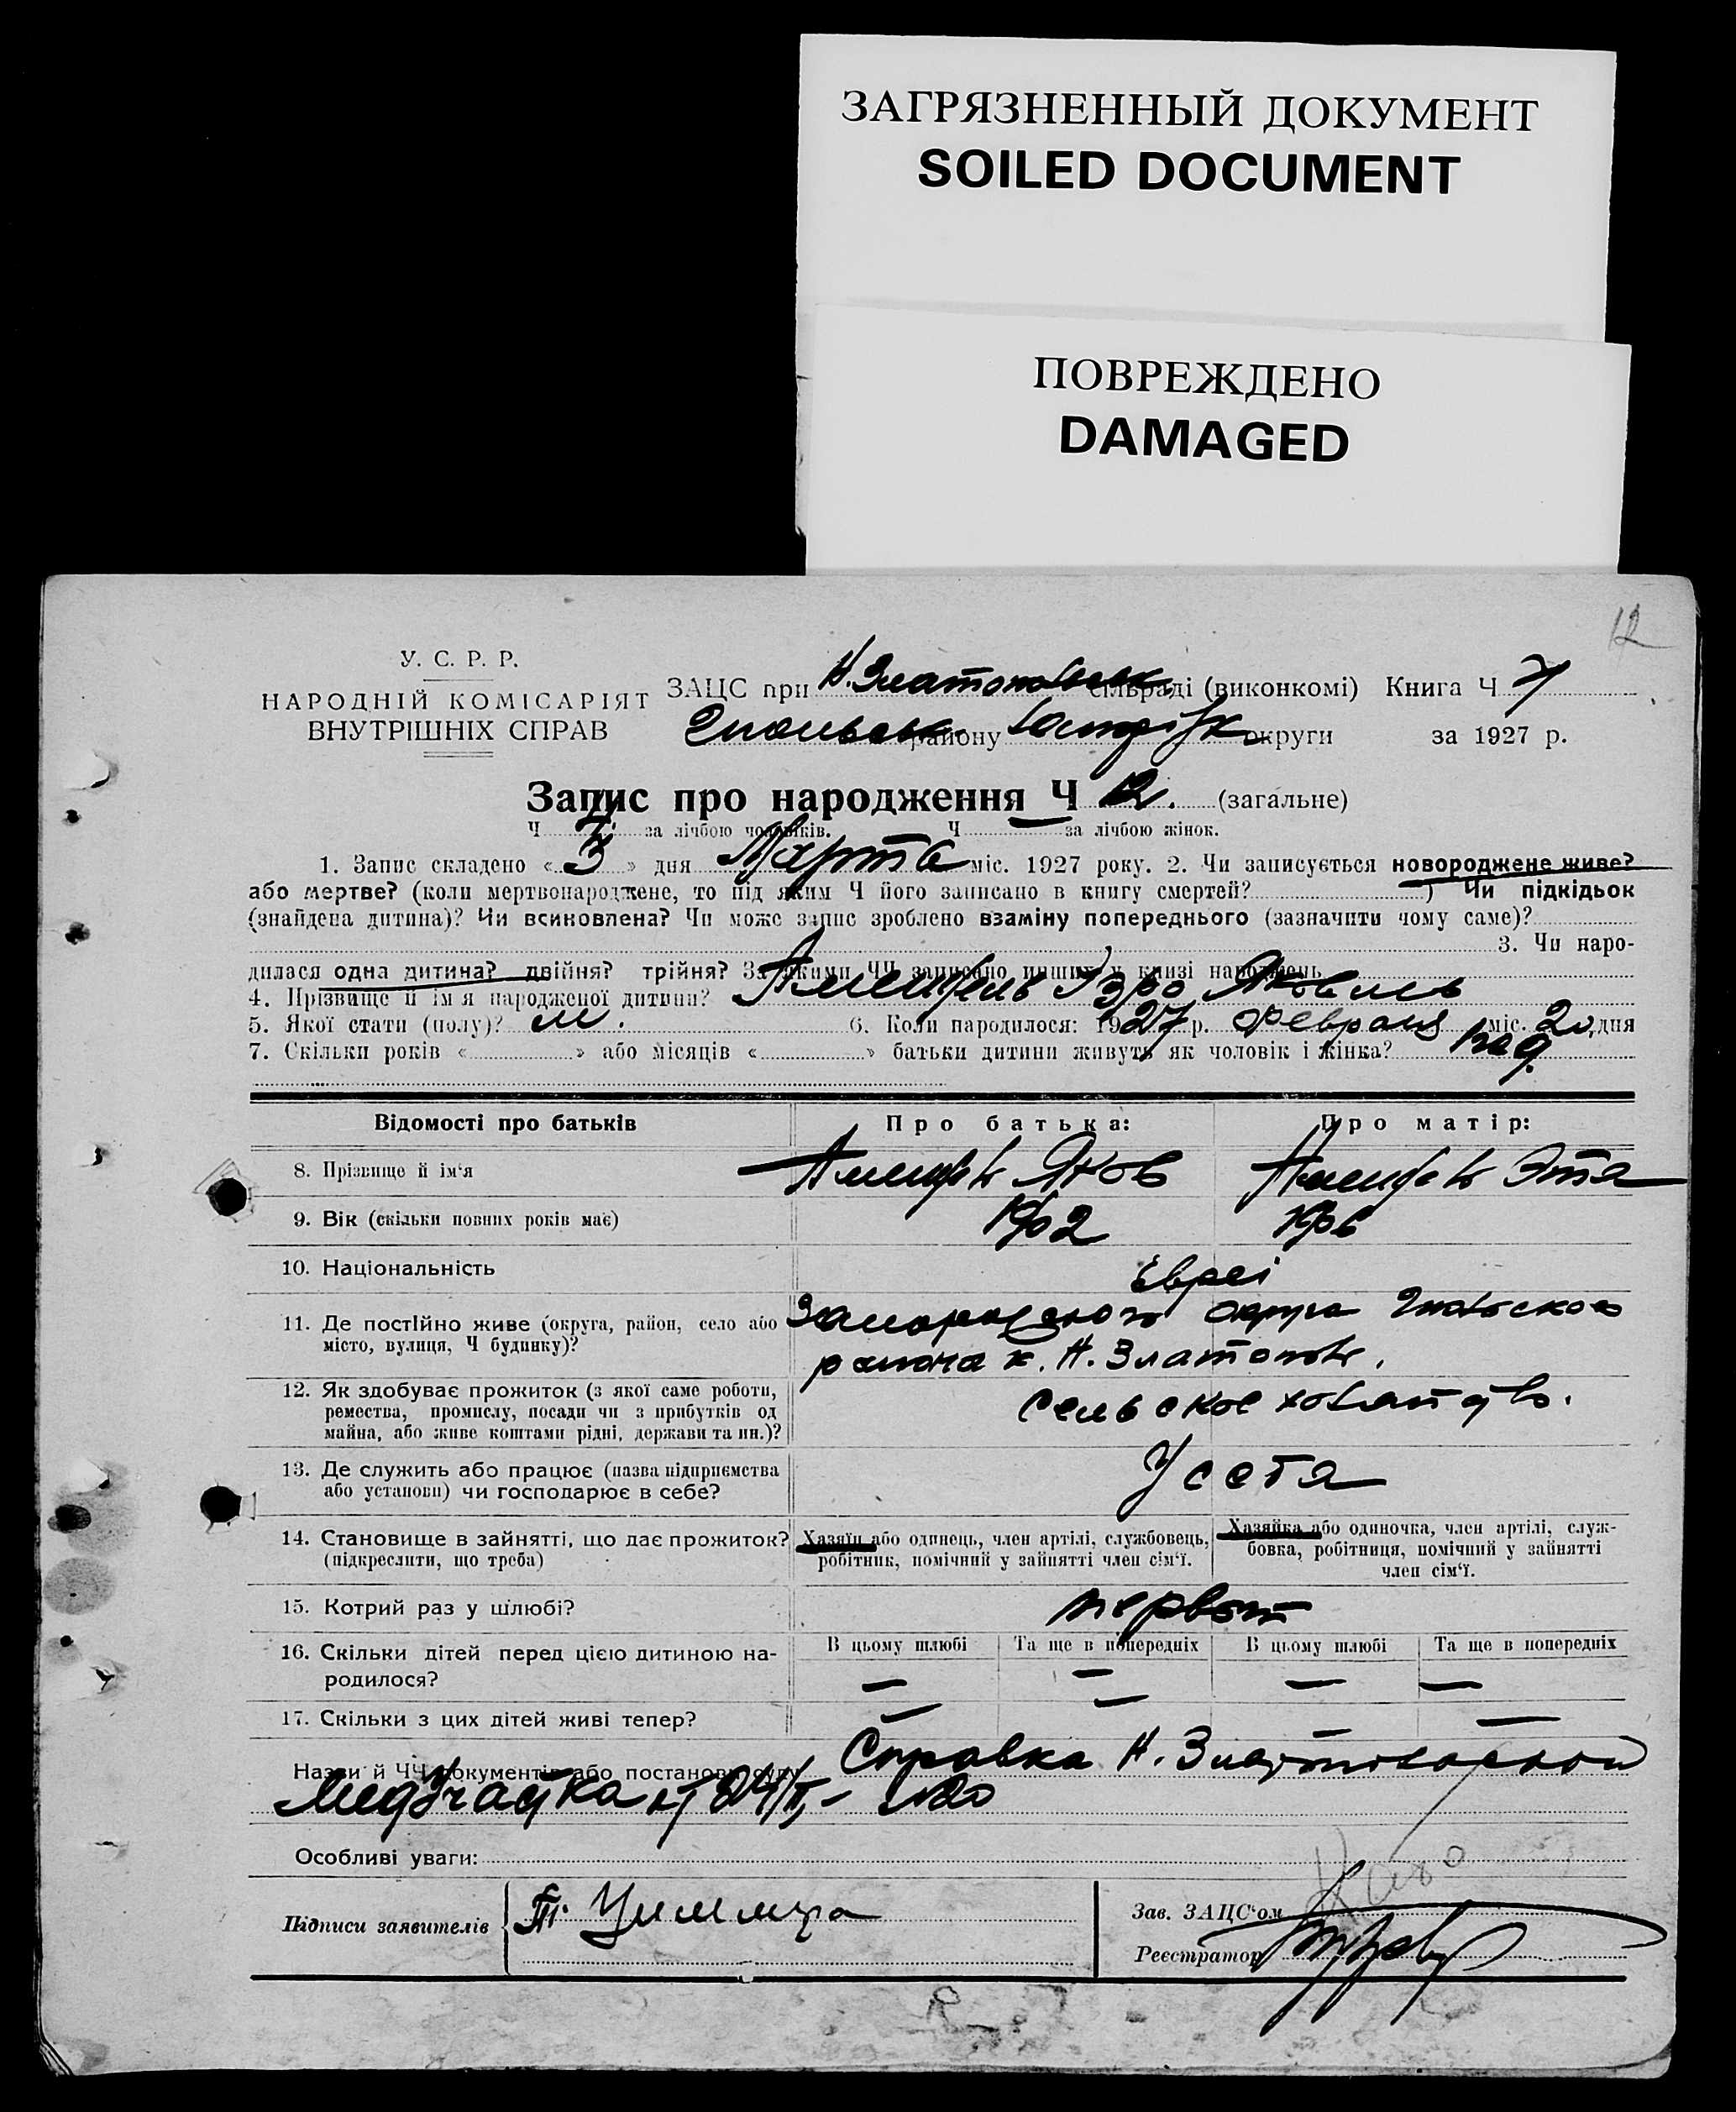 ЗАГРЯЗНЕННЫЙ ДОКУМЕНТ
SOILED DOCUMENT
ПОВРЕЖДЕНО
DAMAGED
12
У. С. Р. Р.
НАРОДНІЙ КОМІСАРІЯТ
ВНУТРІШНІХ СПРАВ
ЗАЦС при Н. Златоповськ сільраді (виконкомі) Книга Ч 7
району округи за 1927 р.
Запис про народження Ч 12. (загальне)
Ч 7 за лічбою чоловіків. Ч — за лічбою жінок.
1. Запис складено «3» дня Марта міс. 1927 року. 2. Чи записується новороджене живе?
або мертве? (коли мертвонароджене, то під яким Ч його записано в книгу смертей? ) Чи підкідьок
(знайдена дитина)? Чи всиновлена? Чи може запис зроблено взаміну попереднього (зазначити чому саме)?
3. Чи наро-
дилася одна дитина? двійня? трійня? За якими ЧЧ записано инших у книзі народжень
4. Прізвище й ім'я народженої дитини? Яковлев
5. Якої стати (полу)? м. 6. Коли народилося: 1927 р. Февраля міс. 20 дня
7. Скільки років « » або місяців « » батьки дитини живуть як чоловік і жінка?
Відомості про батьків
Про батька:
Про матір:
8. Прізвище й ім'я
Яков
Эта
9. Вік (скільки повних років має)
1902
1906
10. Національність
Євреі
11. Де постійно живе (округа, район, село або
місто, вулиця, Ч будинку)?
Запорожского округа
района к. Н. Златополь.
12. Як здобуває прожиток (з якої саме роботи,
ремества, промислу, посади чи з прибутків од
майна, або живе коштами рідні, держави та ин.)?
Сельское хозяйство.
13. Де служить або працює (назва підприємства
або установи) чи господарює в себе?
У себя
14. Становище в зайнятті, що дає прожиток?
(підкреслити, що треба)
Хазяїн або одинець, член артілі, службовець,
робітник, помічний у зайнятті член сім'ї.
Хазяйка або одиночка, член артілі, служ-
бовка, робітниця, помічний у зайнятті
член сім'ї.
15. Котрий раз у шлюбі?
первый
16. Скільки дітей перед цією дитиною на-
родилося?
В цьому шлюбі
Та ще в попередніх
В цьому шлюбі
Та ще в попередніх
— — — —
17. Скільки з цих дітей живі тепер?
— — — —
Назви й ЧЧ документів або постанови суду Справка Н. Златопольской
Медучастка от 24/II-
Особливі уваги:
Підписи заявителів
Зав. ЗАЦС'ом
Реєстратор